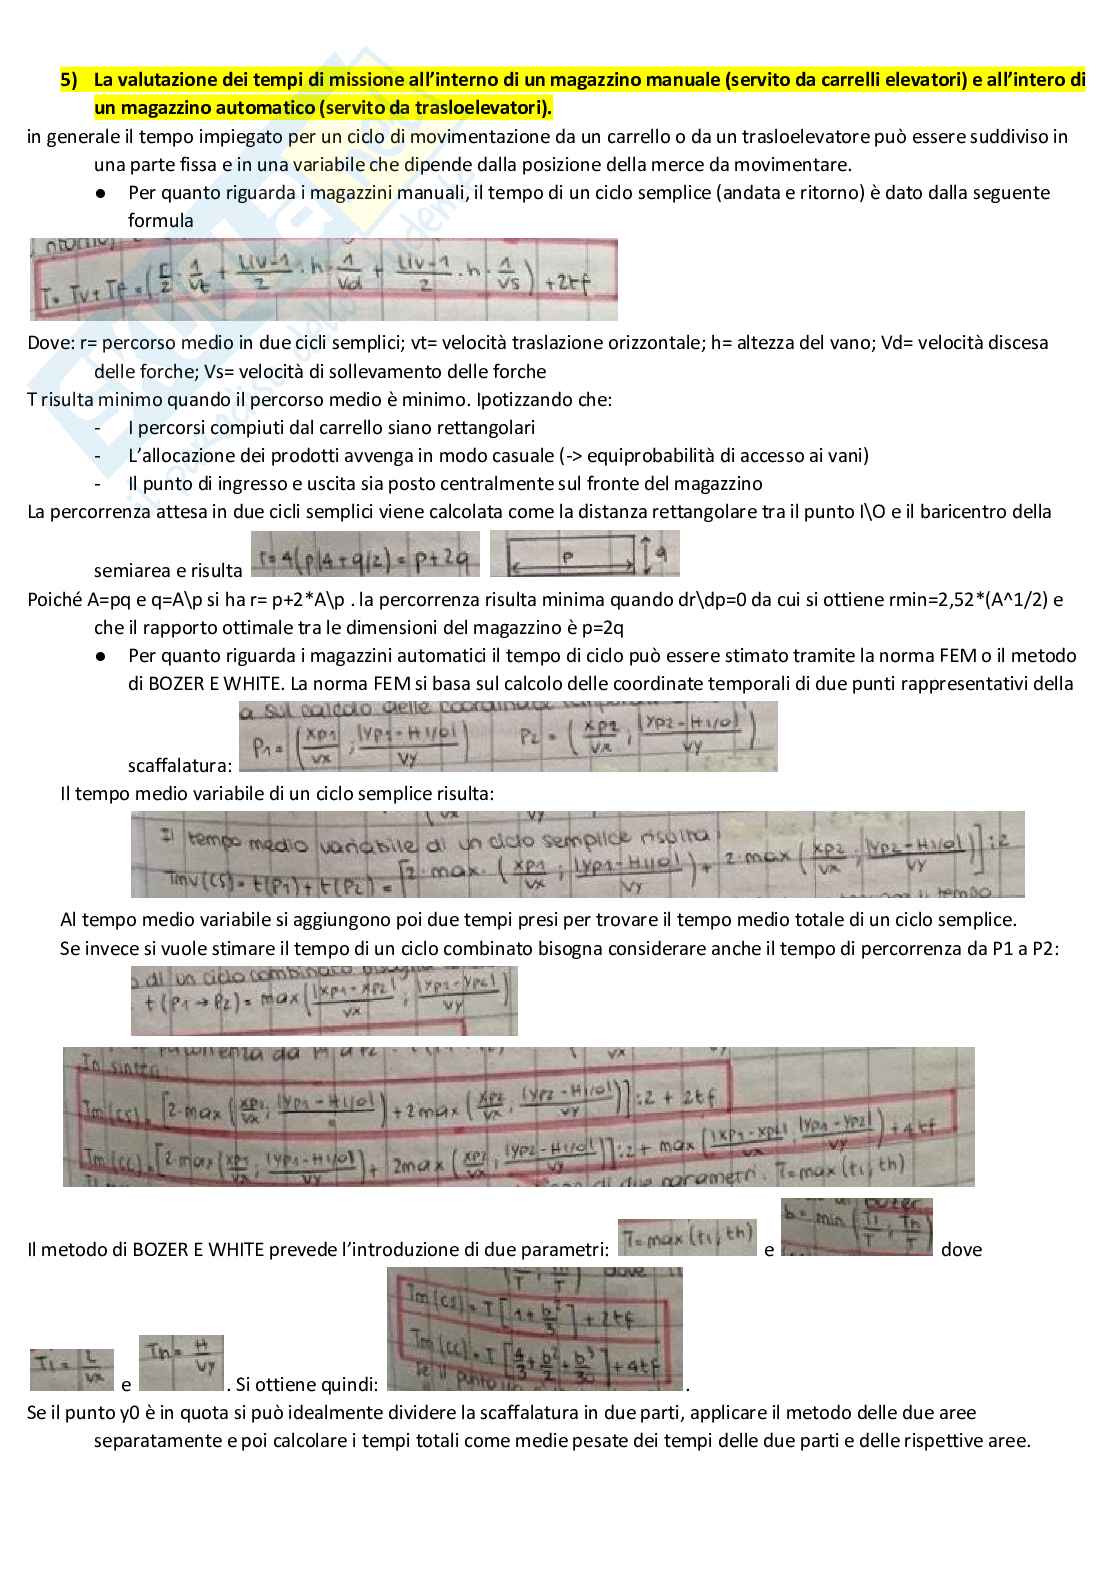 5) La valutazione dei tempi di missione all’interno di un magazzino manuale (servito da carrelli elevatori) e all’intero di
un magazzino automatico (servito da trasloelevatori).
in generale il tempo impiegato per un ciclo di movimentazione da un carrello o da un trasloelevatore può essere suddiviso in
una parte fissa e in una variabile che dipende dalla posizione della merce da movimentare.
● Per quanto riguarda i magazzini manuali, il tempo di un ciclo semplice (andata e ritorno) è dato dalla seguente
formula
T= Tv+Tf = (r/2 · 1/vt + LIV-1/2 · h · 1/Vd + LIV-1/2 · h · 1/Vs) + 2tf
Dove: r= percorso medio in due cicli semplici; vt= velocità traslazione orizzontale; h= altezza del vano; Vd= velocità discesa
delle forche; Vs= velocità di sollevamento delle forche
T risulta minimo quando il percorso medio è minimo. Ipotizzando che:
- I percorsi compiuti dal carrello siano rettangolari
- L’allocazione dei prodotti avvenga in modo casuale (-> equiprobabilità di accesso ai vani)
- Il punto di ingresso e uscita sia posto centralmente sul fronte del magazzino
La percorrenza attesa in due cicli semplici viene calcolata come la distanza rettangolare tra il punto I\O e il baricentro della
semiarea e risulta r=4(p/4+q/2)= p+2q p q
Poiché A=pq e q=A\p si ha r= p+2*A\p . la percorrenza risulta minima quando dr\dp=0 da cui si ottiene rmin=2,52*(A^1/2) e
che il rapporto ottimale tra le dimensioni del magazzino è p=2q
● Per quanto riguarda i magazzini automatici il tempo di ciclo può essere stimato tramite la norma FEM o il metodo
di BOZER E WHITE. La norma FEM si basa sul calcolo delle coordinate temporali di due punti rappresentativi della
scaffalatura: P1= (xp1/vx ; |yp1-HI/O|/vy) P2= (xp2/vx ; |yp2-HI/O|/vy)
Il tempo medio variabile di un ciclo semplice risulta:
Il tempo medio variabile di un ciclo semplice risulta:
Tmv(CS)= t(P1)+t(P2) = [2·max·(xp1/vx ; |yp1-HI/O|/vy) + 2·max(xp2/vx ; |yp2-HI/O|/vy)]:2
Al tempo medio variabile si aggiungono poi due tempi presi per trovare il tempo medio totale di un ciclo semplice.
Se invece si vuole stimare il tempo di un ciclo combinato bisogna considerare anche il tempo di percorrenza da P1 a P2:
di un ciclo combinato
t(P1→P2)= max(|xp1-xp2|/vx ; |yp1-yp2|/vy)
In sintesi
Tm(CS)= [2·max(xp1/vx ; |yp1-HI/O|/vy) + 2max(xp2/vx ; |yp2-HI/O|/vy)]:2 + 2tf
Tm(CC)= [2·max(xp1/vx ; |yp1-HI/O|/vy) + 2max(xp2/vx ; |yp2-HI/O|/vy)]:2 + max(|xp1-xp2|/vx ; |yp1-yp2|/vy) + 4tf
di due parametri. T=max(tl;th)
Il metodo di BOZER E WHITE prevede l’introduzione di due parametri: T=max(tl;th) e b= min(Tl/T ; Th/T) dove
Tl= L/vx e Th= H/vy . Si ottiene quindi: Tm(CS)= T[1+b²/3]+2tf
Tm(CC)= T[4/3+b²/2+b³/30]+4tf .
Se il punto y0 è in quota si può idealmente dividere la scaffalatura in due parti, applicare il metodo delle due aree
separatamente e poi calcolare i tempi totali come medie pesate dei tempi delle due parti e delle rispettive aree.